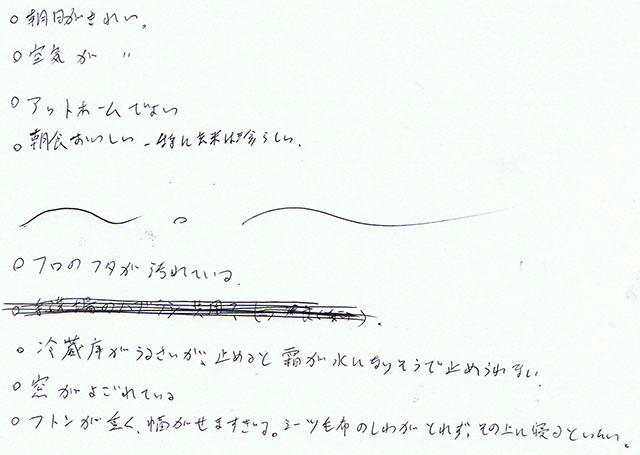 ○朝日がきれい。
○空気が 〃
○アットホームでよい
○朝食おいしい -特に玄米は珍らしい.
○フロのフタが汚れている.
○冷蔵庫がうるさいが、止めると霜が水になりそうで止められない.
○窓がよごれている
○フトンが重く、幅がせますぎる。シーツ毛布のしわがとれず、その上に寝るといたい。